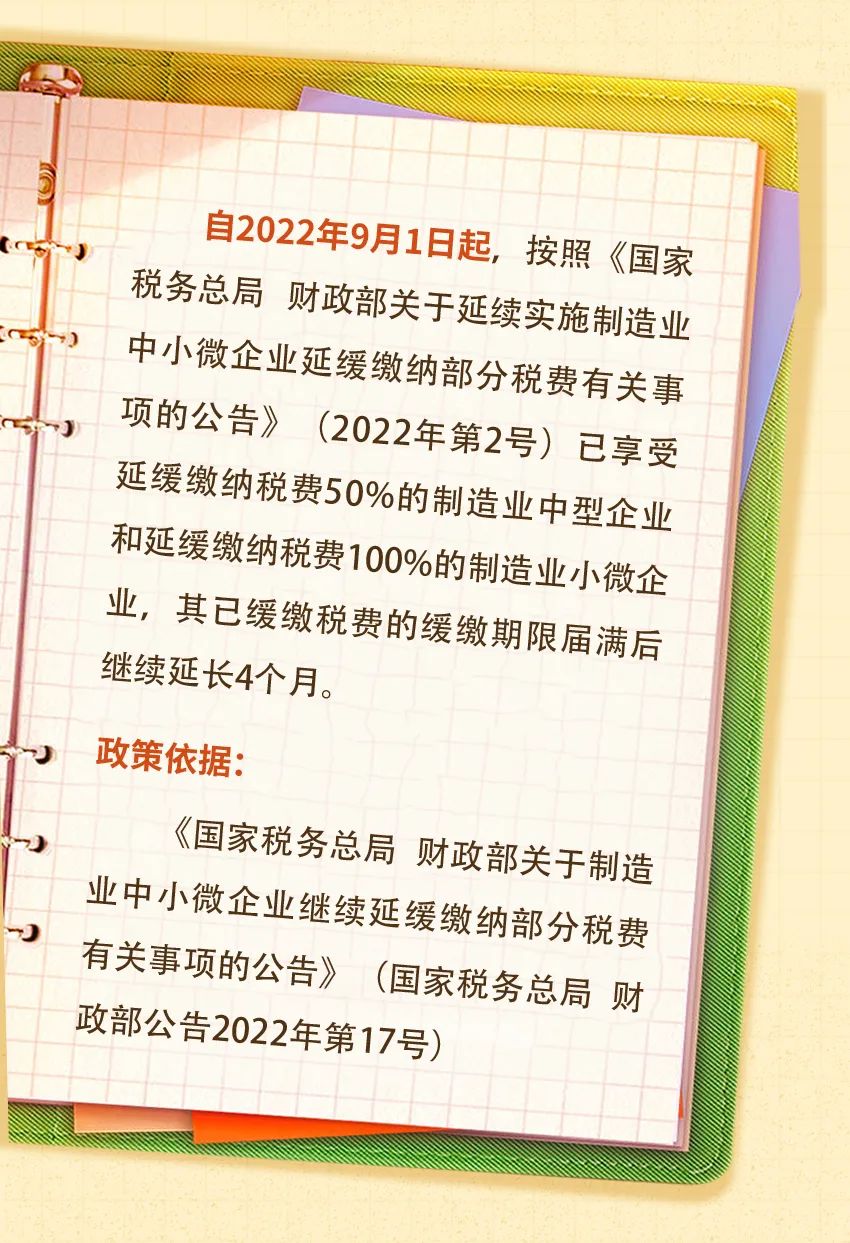 自2022年9月1日起，按照《国家
税务总局 财政部关于延续实施制造业
中小微企业延缓缴纳部分税费有关事
项的公告》（2022年第2号）已享受
延缓缴纳税费50%的制造业中型企业
和延缓缴纳税费100%的制造业小微企
业，其已缓缴税费的缓缴期限届满后
继续延长4个月。
政策依据：
《国家税务总局 财政部关于制造
业中小微企业继续延缓缴纳部分税费
有关事项的公告》（国家税务总局 财
政部公告2022年第17号）